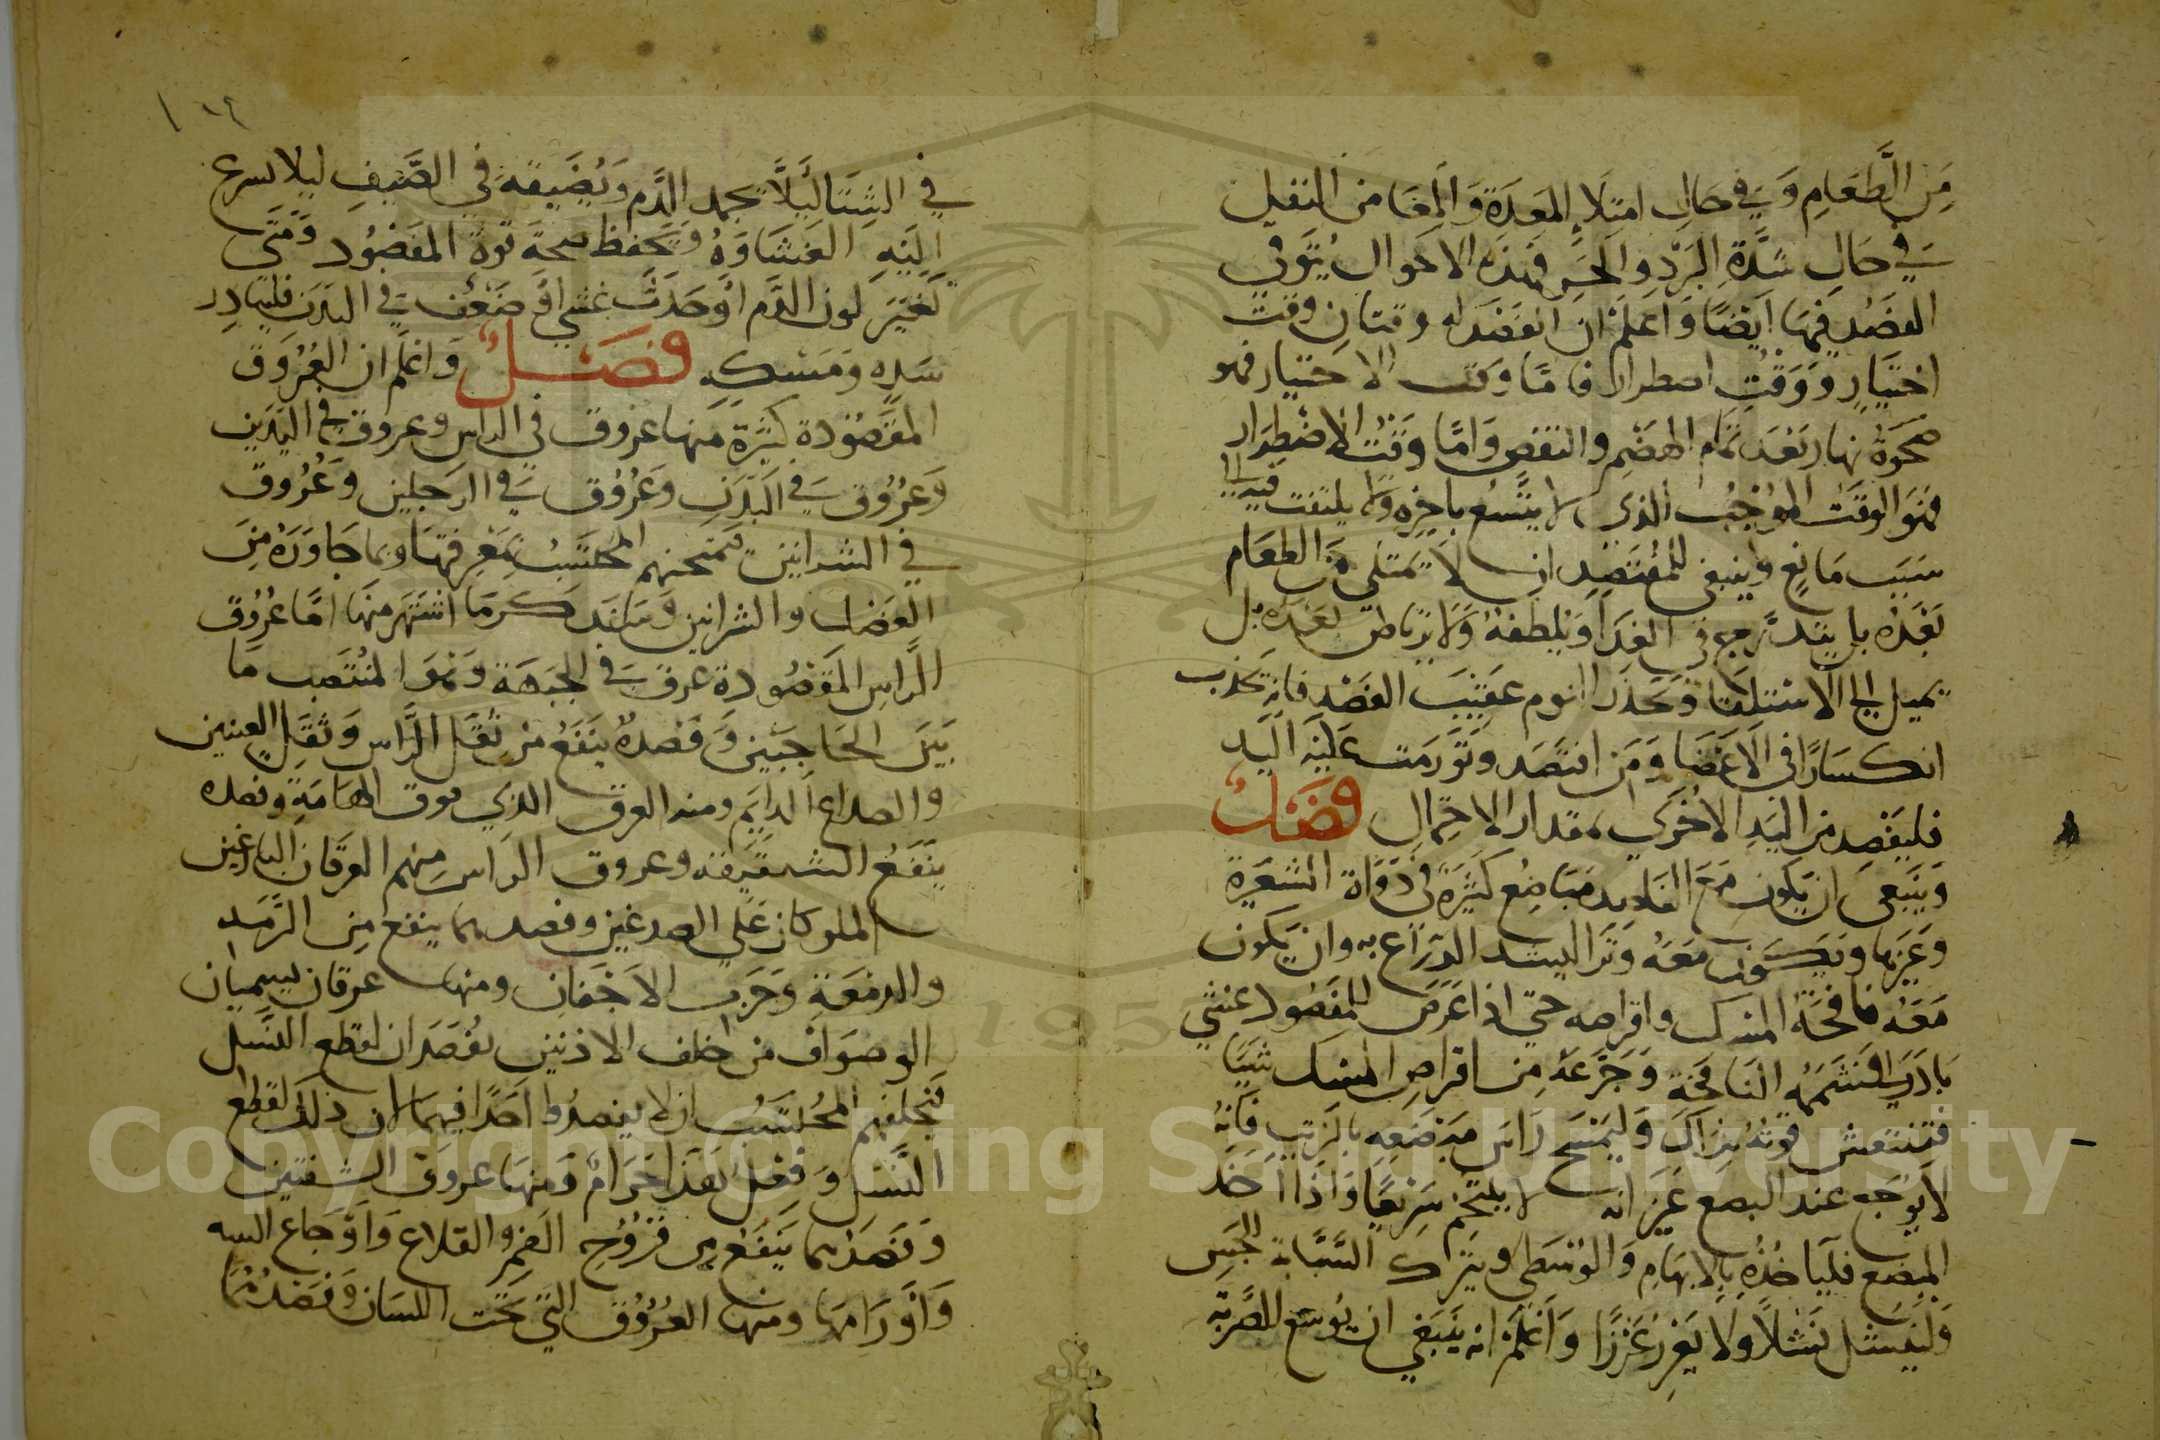 مِنَ الطَّعَامِ وَفي حَالِ امتِلَاءِ المعِدَةِ وَالمِعَا من الثفل
في حَالِ شدَّةِ البَرْدِ والحَرِّ فهذِه الاحوال يُتَوقى
الفَصْد فيهَا ايْضًا وَاعْلَمْ ان الفَصْدَ له وقتَانِ وقت
اختيَارٍ وَوَقْت اضطرار فامَّا وَقت الاختيار فهو
ضحْوَةُ نهار بَعْدَ تمَام الهَضْم والنفض وَامَّا وَقْتُ الاضْطِرَار
فهُوَ الوقت المُوْجِبُ الذي لا يتَّسع تاخيره ولا يلتفت فيه الى
سَبَب مَانع وينبغي للمُفْتَصِدِ ان لا يمتَلِي من الطعَام
بَعْدَهُ بل يتدَّرج في الغِذَا ويُلَطفهُ وَلا يرتاض بَعدَهُ بل
يميل الى الاستلقَا وَيحَذر النوم عَقِيْبَ الفَصْد فانه يحدث
انكسَارًا في الاعْضَا وَمَن افتصَد وتَوَرمَت عَليْهِ اليَد
فليفْصِد من اليَدِ الاخرَي بمقدار الاحتمال فصل
وَيَنبغي ان يكون مَعَ الفاصد مَبَاضِع كَثِيْرَة مِن ذوَاة الشعيرة
وَغَيرها وَيَكون مَعَه وَترَ ليشد الذِّرَاع به وان يكون
مَعَهُ نافجَة المسك واقراصه حتي اذا عَرَضَ للمَفْصُود غشْي
بَادَرَ فشَممهُ النافجَة وَجَرَّعَهُ مِن اقراص المسك شَيْيًا
فتنتعش قوتهُ بذَاكَ وَليَمْسَحْ رَاس مبْضَعِهِ بالزيتِ فَانهُ
لا يُوْجِع عند البضع غير انه لا يلتحِم سَريعًا وَاذَا اخَذ
المبضع فليَاخذْهُ بالابهَامِ وَالوُسْطى وَيَترك السَّبَّابة للجَسِّ
وَلينشل نَشْلاً ولا يَغْرزْ غَرْزًا وَاعْلَمْ انه يَنبَغي ان يُوَسّع الضَّربَة
١٠٤
في الشِتَا لئَلَّا يجمد الدَّم وَيُضَيقهُ في الصَّيْفِ ليلا يسرع
اليْهِ الغشَاوَةُ وَتحفظ صحة قوة المفصُود وَمَتَى
تغيَّرَ لون الدَّم اوْ حَدَث غشي او ضَعُف في البَدَن فليبَادِر
شدِهِ وَمَسْكِهِ فصل وَاعْلَم ان العُرُوق
المفصُودة كثيْرَة منها عُرُوق في الراس وعروق في اليَدَين
وَعُرُوْق في البَدَن وَعُرُوْق في الرجلين وَعُرُوق
في الشرايين فيمتحنهم المحتسبُ بمَعْرفتهَا وبما جَاوَرَهُ مِنَ
العَضَل والشرايين وَسَاذكر مَا اشتهَر منهَا امَّا عُرُوْق
الرَّاس المَفْصُودة عرق في الجَبْهة وَهُوَ المنْتَصِب مَا
بَيْنَ الحَاجبَيْن وَفَصْدهُ يَنْفَعُ مِن ثقَل الرَّاس وَثقَلِ العينين
والصداع الدايم ومنه العرق الذي فوق الهَامَةِ وفصده
ينْفَعُ الشقيقه وعروق الراس مِنهم العِرقان البَارزين
الملويان عَلي الصدغين وفصدهما ينفع مِن الرَّمَد
والدمعَةِ وَجَرب الاجفَان ومنها عرقَان يسميان
الوصواف من خلف الاذنين يُفصَدَان لقطع النسْل
فيحلفهم المحُتسب ان لا يفصدُوا احَدًا فيهما لان ذلك لقطع
النَّسْل وَفعْل هَذا حَرَامٌ وَمنهَا عروق الشفتين
وَفَصدهُما يَنْفعُ من قرُوْحِ الفمِ والقلاع وَاوْجَاع اللثه
وَاوْرَامهَا ومنها العُرُوق التي تحت اللسَان وَفَصْدُهُمَا